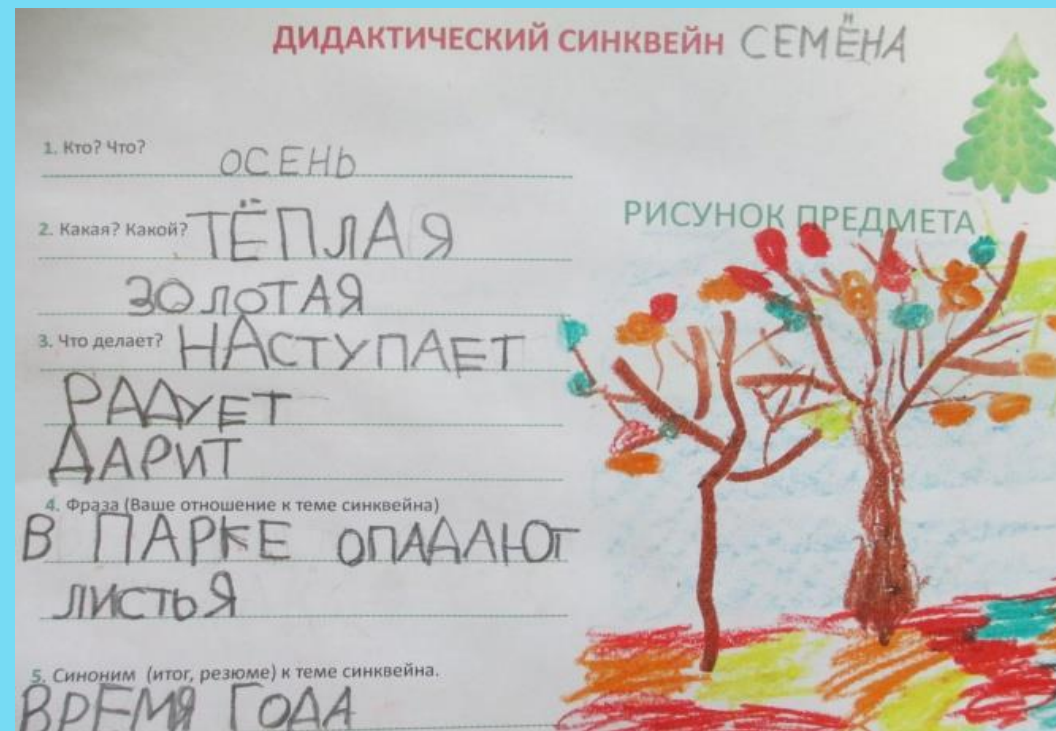 ДИДАКТИЧЕСКИЙ СИНКВЕЙН СЕМЁНА
1. Кто? Что? ОСЕНЬ
2. Какая? Какой? ТЁПЛАЯ
ЗОЛОТАЯ
3. Что делает? НАСТУПАЕТ
РАДУЕТ
ДАРИТ
4. Фраза (Ваше отношение к теме синквейна)
В ПАРКЕ ОПАДАЮТ
ЛИСТЬЯ
5. Синоним (итог, резюме) к теме синквейна.
ВРЕМЯ ГОДА
РИСУНОК ПРЕДМЕТА